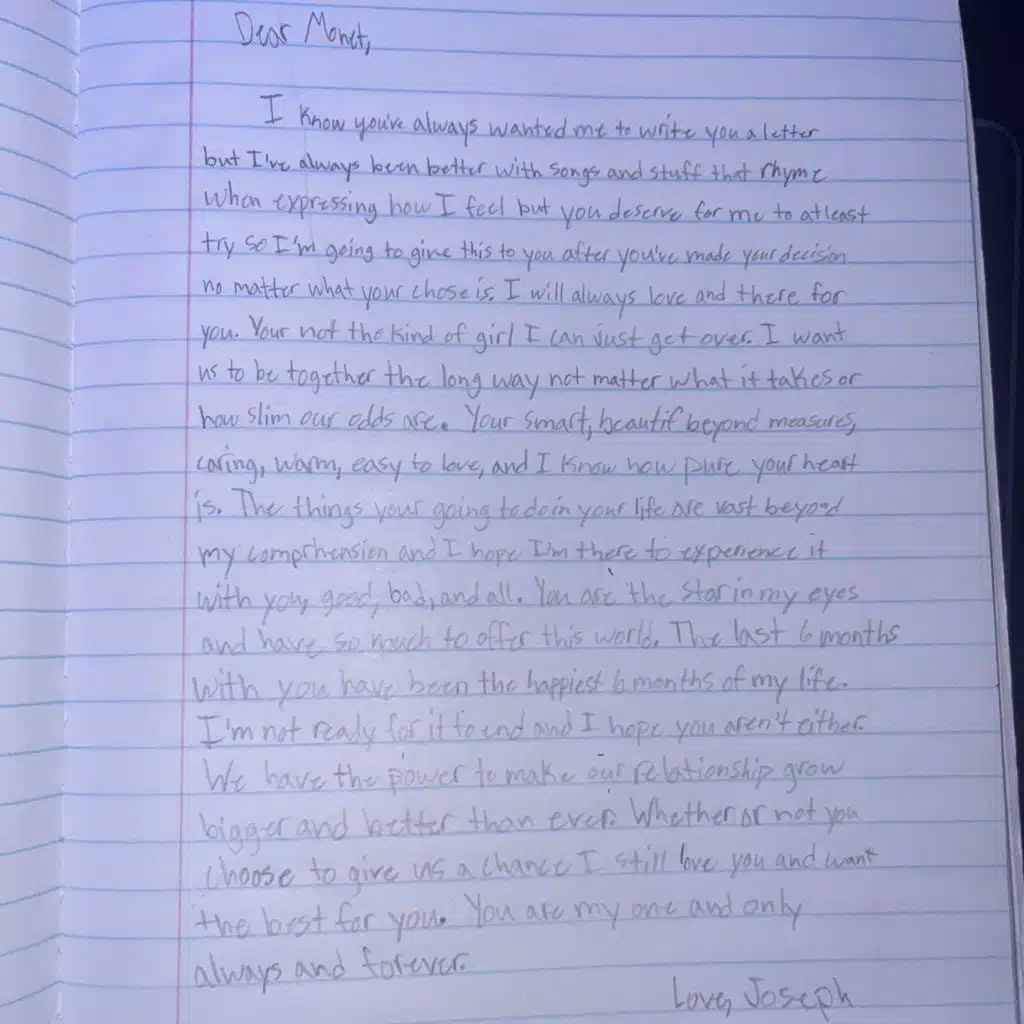 Dear Monet,
I know you've always wanted me to write you a letter
but I've always been better with songs and stuff that rhyme
when expressing how I feel but you deserve for me to atleast
try so I'm going to give this to you after you've made your decision
no matter what your chose is. I will always love and there for
you. Your not the kind of girl I can just get over. I want
us to be together the long way not matter what it takes or
how slim our odds are. Your smart, beautif beyond measures,
caring, warm, easy to love, and I know how pure your heart
is. The things your going to do in your life are vast beyond
my comprhension and I hope I'm there to experience it
with you, good, bad, and all. You are the star in my eyes
and have so much to offer this world. The last 6 months
with you have been the happiest 6 months of my life.
I'm not ready for it to end and I hope you aren't either.
We have the power to make our relationship grow
bigger and better than ever. Whether or not you
choose to give us a chance I still love you and want
the best for you. You are my one and only
always and forever.
Love, Joseph